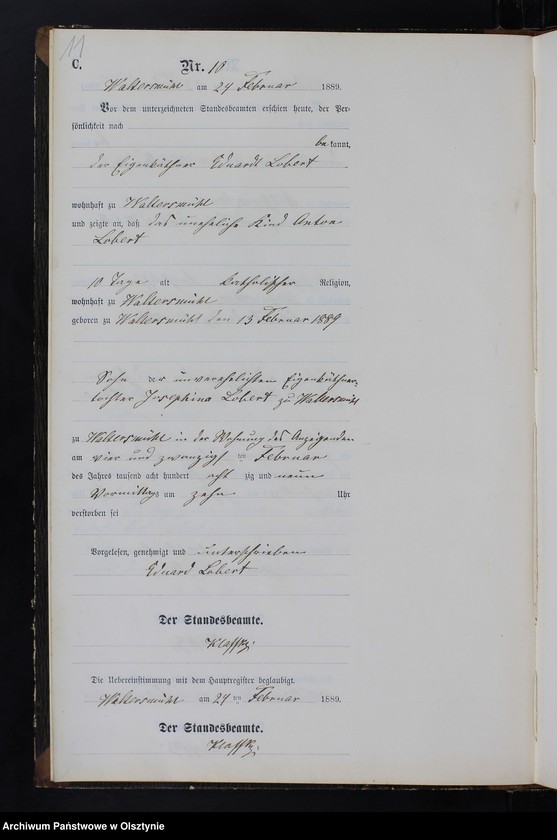 11
C.
Nr. 10
Waltersmühl am 24 Februar 1889.
Vor dem unterzeichneten Standesbeamten erschien heute, der Per-
sönlichkeit nach
be kannt,
der Eigenkäthner Eduard Lobert
wohnhaft zu Waltersmühl
und zeigte an, daß das uneheliche Kind Anton
Lobert
10 Tage alt katholischer Religion,
wohnhaft zu Waltersmühl
geboren zu Waltersmühl den 13 Februar 1889
Sohn der unverehelichten Eigenkäthner-
tochter Josephina Lobert zu Waltersmühl
zu Waltersmühl in der Wohnung des Anzeigenden
am vier und zwanzigsten Februar
des Jahres tausend acht hundert acht zig und neun
Vormittags um zehn Uhr
verstorben sei
Vorgelesen, genehmigt und unterschrieben
Eduard Lobert
Der Standesbeamte.
Klaffki
Die Uebereinstimmung mit dem Hauptregister beglaubigt.
Waltersmühl am 24 ten Februar 1889.
Der Standesbeamte.
Klaffki
Archiwum Państwowe w Olsztynie